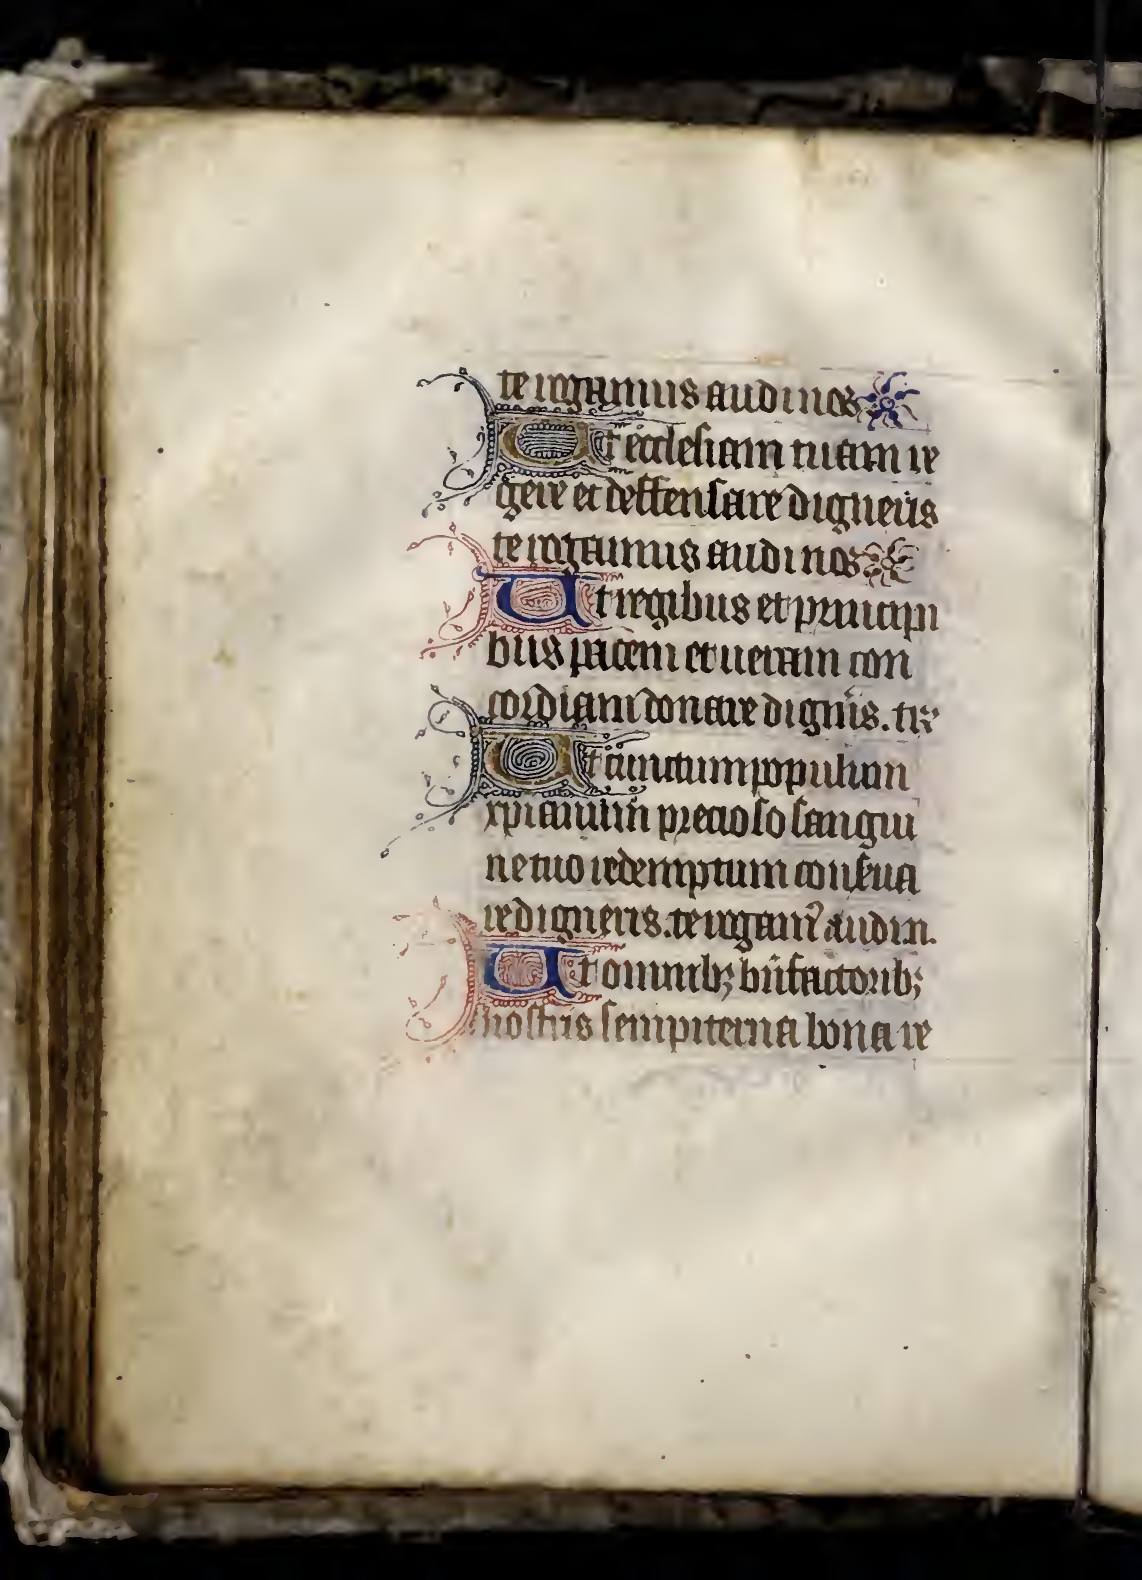 te rogamus audi nos
Ut ecclesiam tuam re
gere et deffensare digneris
te rogamus audi nos
Ut regibus et principi
bus pacem et ueram con
cordiam donare dignis. te r
Ut cunctum populum
xpianum precioso sangui
ne tuo redemptum conserua
re digneris. te rogam audi n.
Ut omnib; bnfactorib;
nostris sempiterna bona re